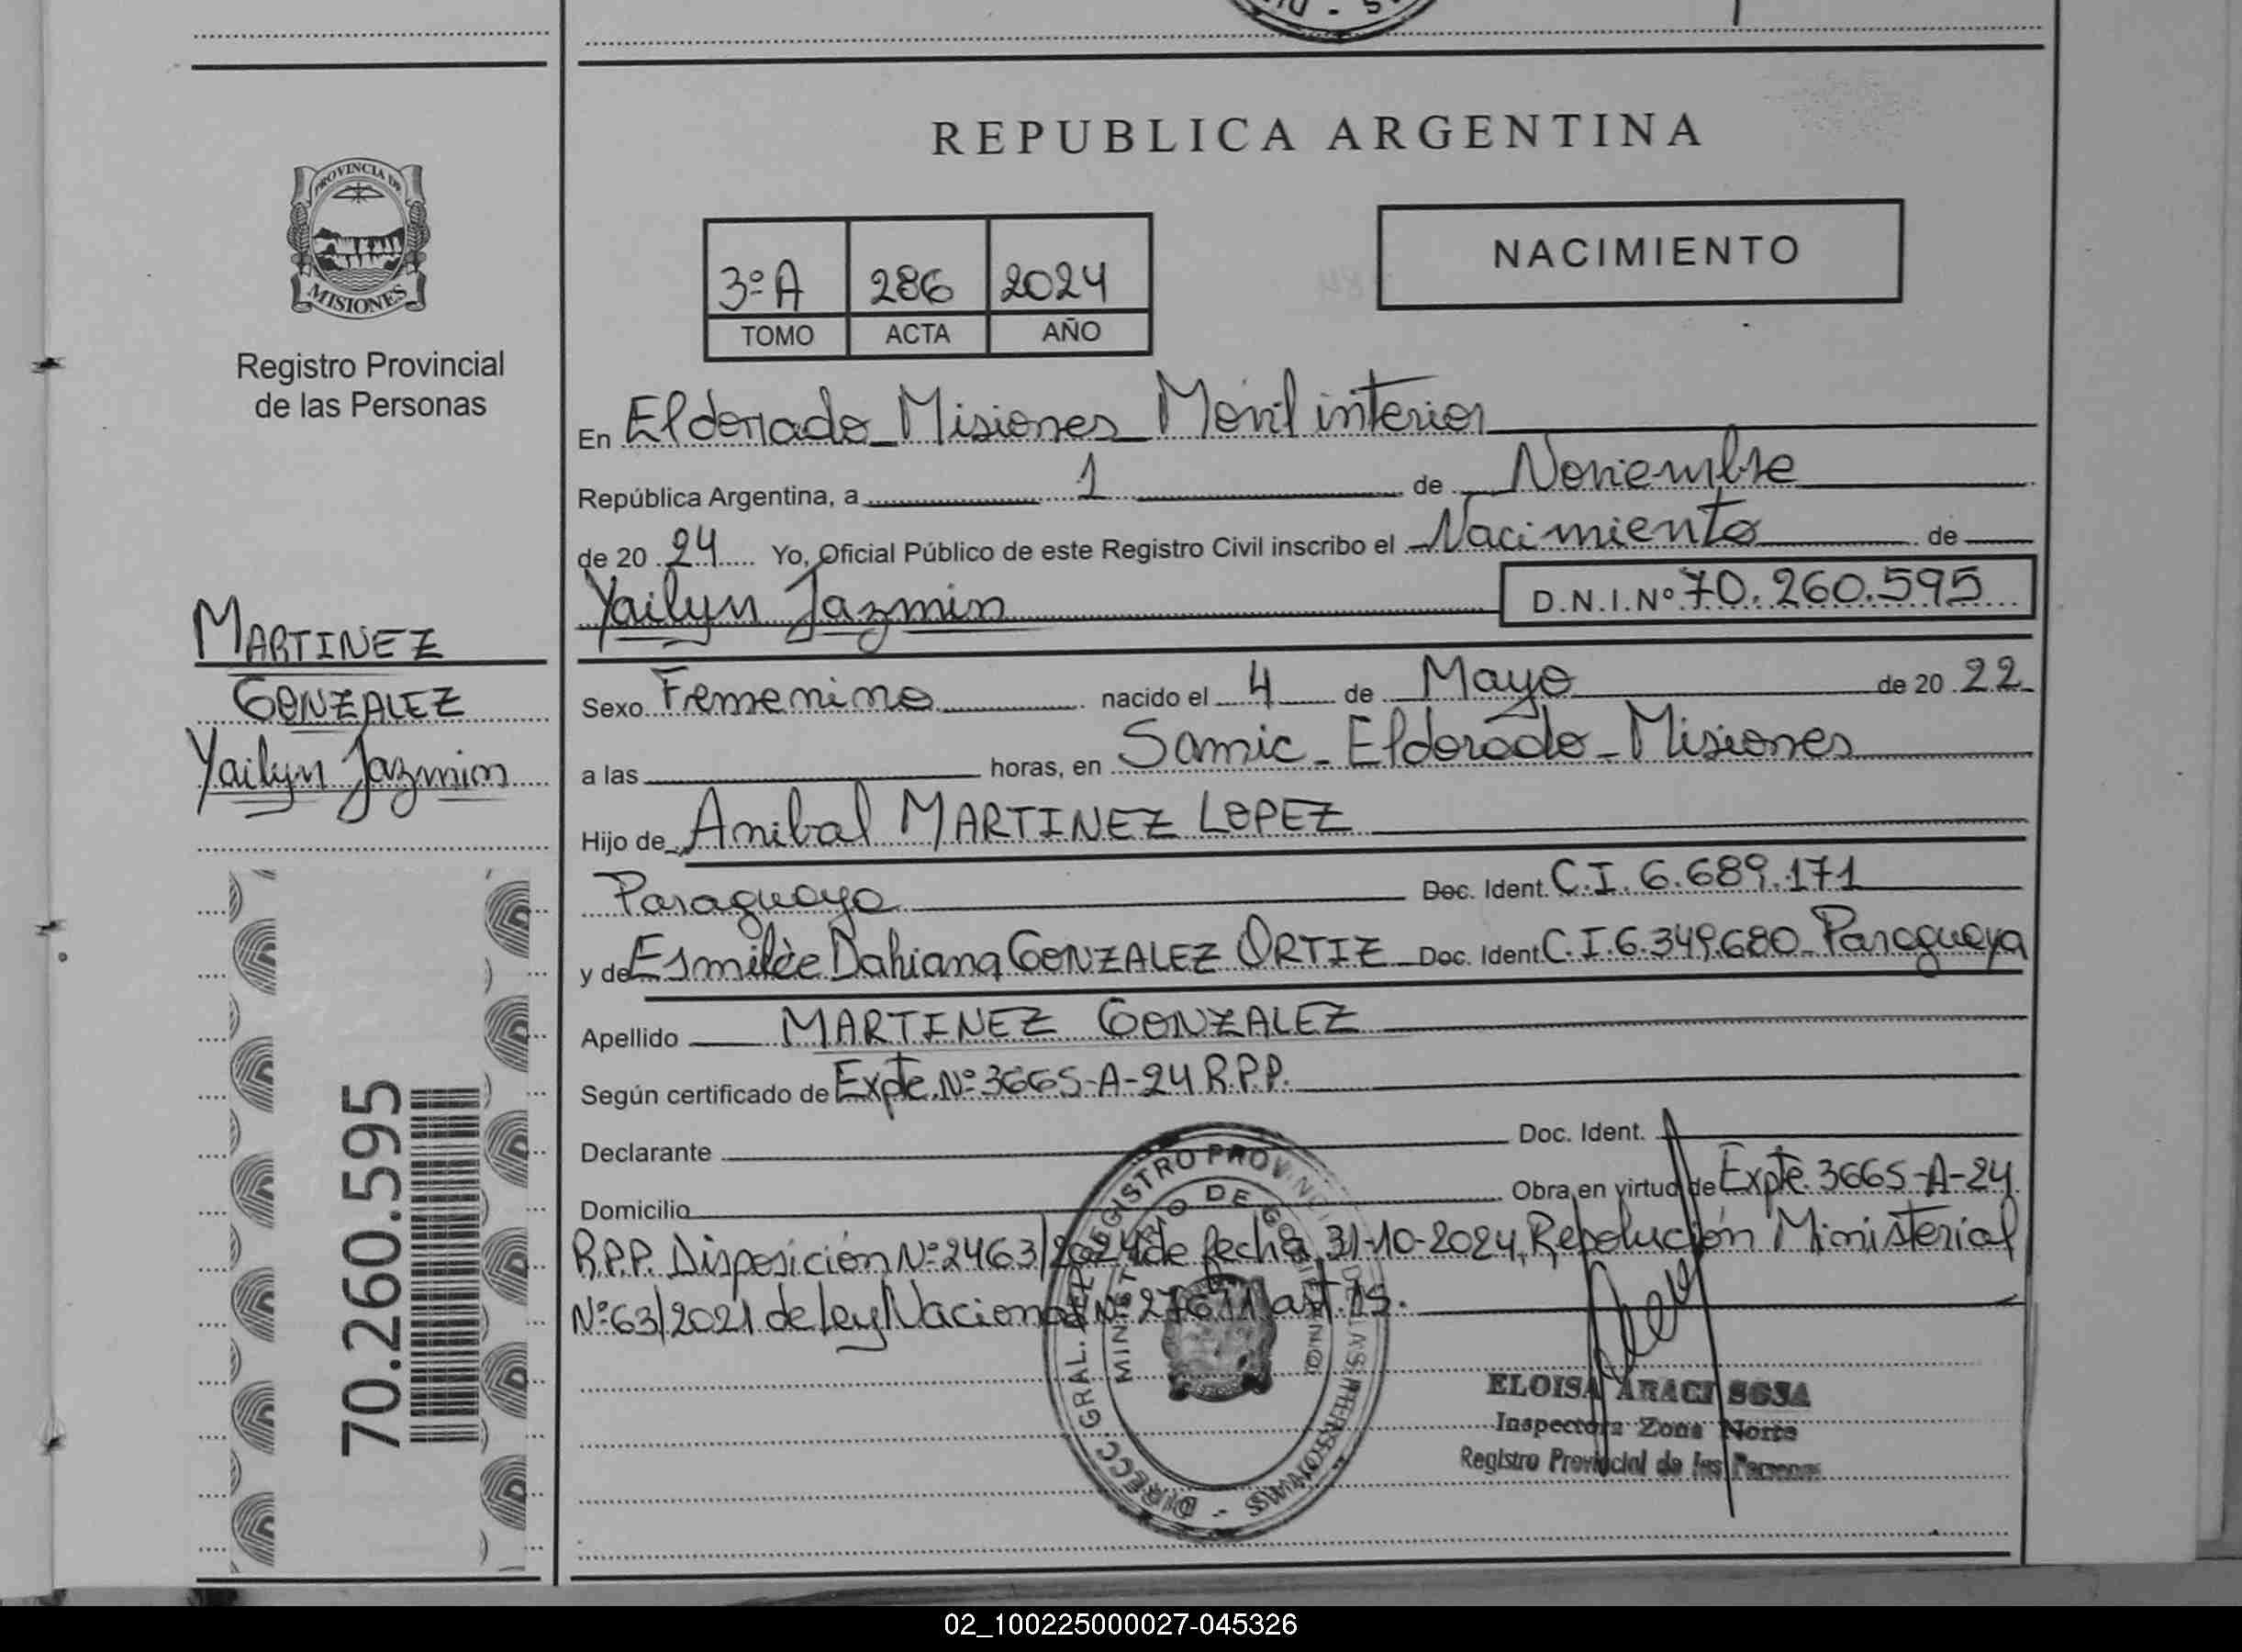 REPUBLICA ARGENTINA
PROVINCIA DE
MISIONES
Registro Provincial
de las Personas
3º A 286 2024
TOMO ACTA AÑO
NACIMIENTO
En Eldorado Misiones Móvil interior
República Argentina, a 1 de Noviembre
de 20 24 Yo, Oficial Público de este Registro Civil inscribo el Nacimiento de
Yailyn Jazmin D.N.I.Nº 70.260.595
MARTINEZ
GONZALEZ
Yailyn Jazmin
Sexo Femenino nacido el 4 de Mayo de 20 22
a las horas, en Samic - Eldorado - Misiones
Hijo de Anibal MARTINEZ LOPEZ
Paraguayo Doc. Ident. C.I. 6.689.171
y de Esmilce Dahiana GONZALEZ ORTIZ Doc. Ident C.I. 6.349.680 - Paraguaya
Apellido MARTINEZ GONZALEZ
Según certificado de Expte. Nº 3665-A-24 R.P.P.
Declarante Doc. Ident.
Domicilio Obra en virtud de Expte. 3665-A-24
R.P.P. Disposición Nº 2463/2024 de fecha 31-10-2024, Resolución Ministerial
Nº 63/2021 de Ley Nacional Nº 27611 art. 15.
70.260.595
DIRECC. GRAL. DEL REGISTRO PROVINCIAL DE LAS PERSONAS - MISIONES
MINISTERIO DE GOBIERNO
ELOISA ARACI SOSA
Inspectora Zona Norte
Registro Provincial de las Personas
02_100225000027-045326